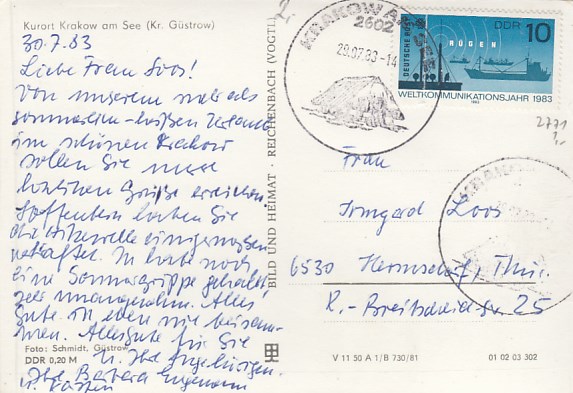 Kurort Krakow am See (Kr. Güstrow)
30.7.83
Liebe Frau Loos!
Von unserem mehr als
sommerlich-heißen Urlaub
im schönen Krakow
sollen Sie unsere
herzlichen Grüße erreichen.
Hoffentlich haben Sie
die Hitzewelle einigermaßen
verkraftet. Ich hatte noch
eine Sommergrippe gehabt,
sehr unangenehm. Alles
Gute
Alles Gute für Sie
u. Ihre Angehörigen
Ihre Barbara
u.
Foto: Schmidt, Güstrow
DDR 0,20 M
BILD UND HEIMAT · REICHENBACH (VOGTL)
KRAKOW AM SEE
2602
29.07.83-14
DEUTSCHE POST
DDR 10
RÜGEN
WELTKOMMUNIKATIONSJAHR 1983
2771
Frau
Irmgard Loos
6530 Hermsdorf, Thür.
R.-Breitscheid-Str. 25
V 11 50 A 1/B 730/81
01 02 03 302